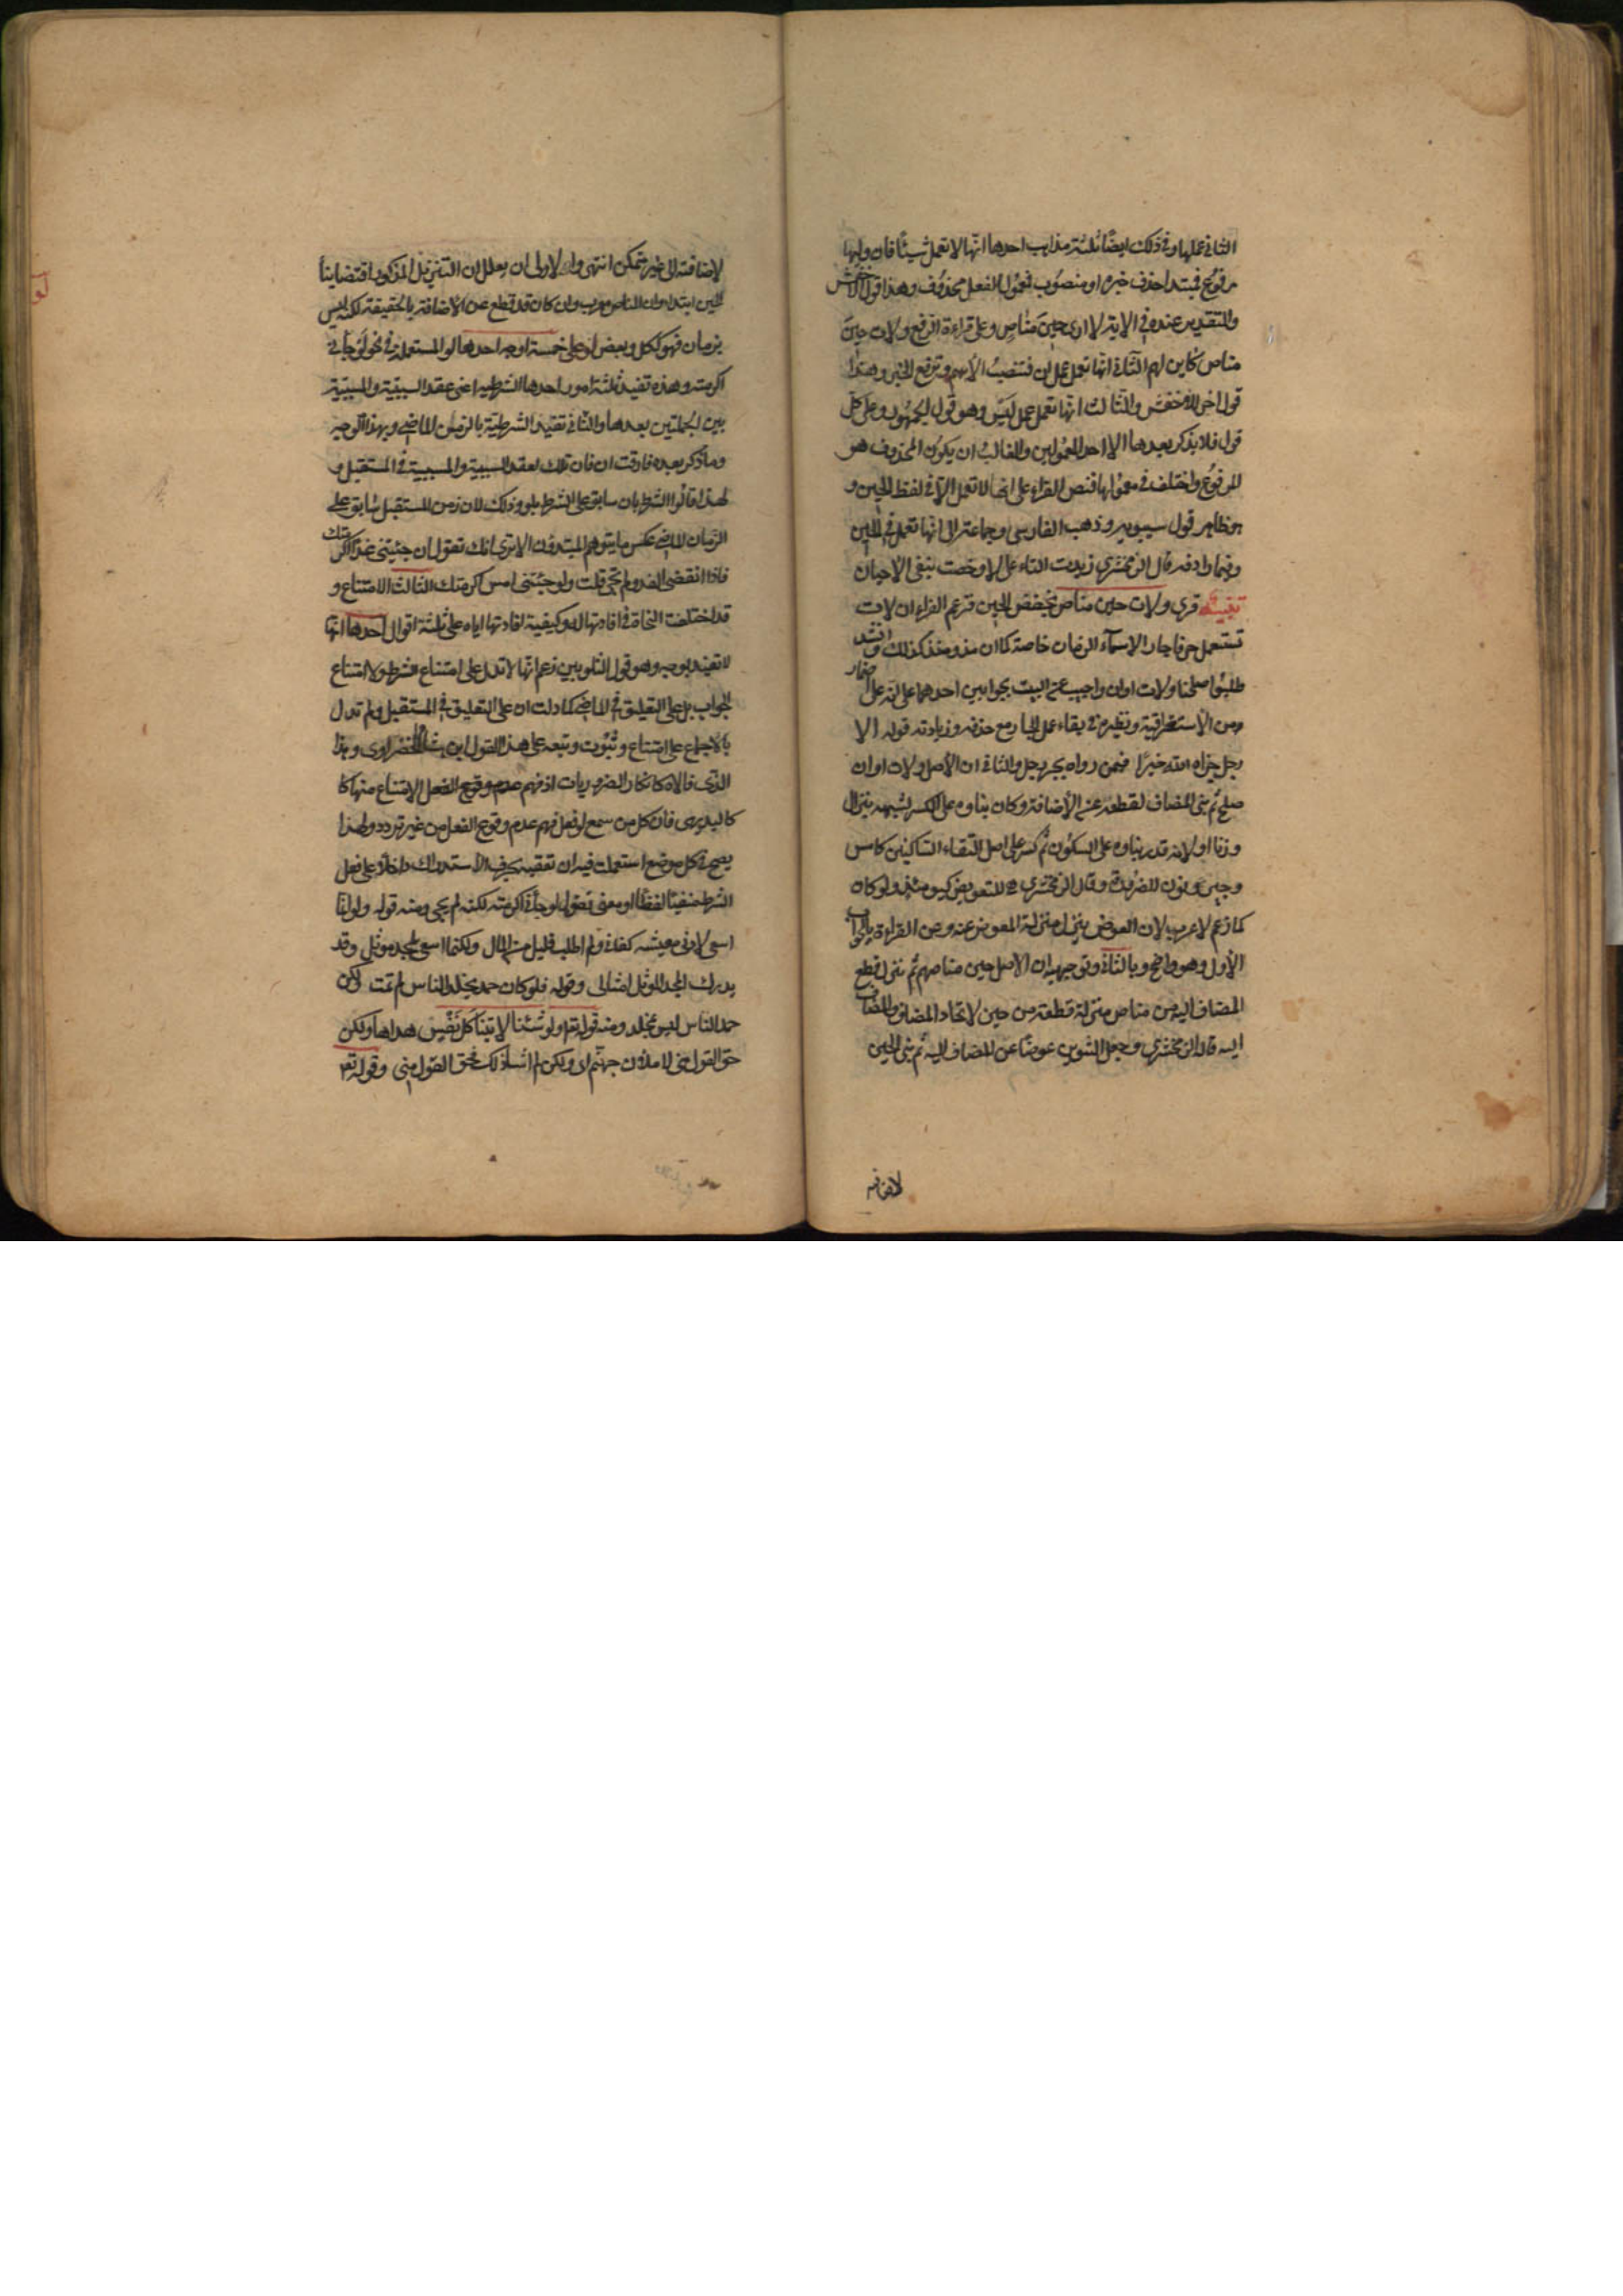 الثانى عملها وفى ذلك ايضًا ثلثة مذاهب احدها انّها لا تعمل شيئًا فان وليها
مرفوع فمبتدا حذف خبره او منصوب فمعمول لفعل محذوف وهذا قول الاخفش
والتقدير عنده فى الاية لا ارى حين مناص وعلى قراءة الرفع ولات حين
مناص كاين لهم الثانى انّها تعمل عمل ان فتنصب الاسم وترفع الخبر وهذا
قول اخر للاخفش والثالث انّها تعمل عمل ليس وهو قول الجمهور وعلى كل
قول فلا يذكر بعدها الا احد المعمولين والغالب ان يكون المحذوف هو
المرفوع واختلف فى معمولها فنص الفراء على انها لا تعمل الا فى لفظ الحين و
هو ظاهر قول سيبويه وذهب الفارسى وجماعة الى انّها تعمل فى الحين
وفيما رادفه قال الزمخشرى زيدت التاء على لا وخصت بنفى الاحيان
تنبيه قرى ولات حين مناص بخفض الحين فزعم الفراء ان لات
تستعمل حرفا جارا لاسمآء الزمان خاصة كما ان مذ ومنذ كذلك وانشد
طلبوا صلحنا ولات اوان واجيب عن البيت بجوابين احدهما على انه على اضمار
من الاستغراقية ونظيره فى بقاء عمل الجار مع حذفه وزيادته قوله الا
رجل جزاه الله خيرًا فيمن رواه بجر رجل والثانى ان الأصل ولات اوان
صلح ثم بنى المضاف لقطعه عن الأضافة وكان بناوه على الكسر لشبهه بنزال
وزنا او لانه قدر بناوه على السكون ثم كسر على اصل التقاء الساكنين كامس
وجير ونون للضرورة وقال الزمخشرى للتعويض كيومئذ ولو كان
كما زعم لاعرب لان العوض ينزل منزلة المعوض عنه وعن القراءة بالجواب
الأول وهو واضح وبالثانى وتوجيهه ان الاصل حين مناصهم ثم نزل قطع
المضاف اليه من مناص منزلة قطعه من حين لاتحاد المضاف والمضاف
اليه قاله الزمخشرى وجعل التنوين عوضًا عن المضاف اليه ثم بنى الحين
لاضافته
لاضافته الى غير متمكن انتهى والاولى ان يعلل ان التنزيل المذكور اقتضا بنأ
الحين ابتدا وان المناص معرب وان كان قد قطع عن الاضافة بالحقيقة لكنه ليس
بزمان فهو ككل وبعض لو على خمسة اوجه احدها لو المستعملة فى نحو لو جأنى
اكرمته وهذه تفيد ثلثة امور احدها الشرطية اعنى عقد السببيّة والمسببيّة
بين الجملتين بعدها والثانى تقييد الشرطية بالزمن الماضى وبهذا الوجه
وما ذكر بعده فارقت ان فان تلك لعقد السببية والمسببية فى المستقبل و
لهذا قالوا الشرط بان سابق على الشرط بلو وذلك لان زمن المستقبل سابق على
الزمان الماضى عكس ما يتوهم المبتدؤن الا ترى انك تقول ان جئتنى غدًا اكرمتك
فاذا انقضى الغد ولم تجى قلت ولو جئتنى امس اكرمتك الثالث الامتناع و
قد اختلفت النحاة فى افادتها له وكيفية افادتها اياه على ثلثة اقوال احدها انّها
لا تفيد بوجه وهو قول الشلوبين زعم انّها لا تدل على امتناع الشرط ولا امتناع
الجواب بل على التعليق فى الماضى كما دلت ان على التعليق فى المستقبل ولم تدل
بالاجماع على امتناع وثبوت وتبعه على هذا القول ابن هشام الخضراوى وهذا
الذى قالاه كانكار الضروريات اذ فهم عدم وقوع الفعل الامتناع منها كا
كالبديهى فان كل من سمع لو فعل فهم عدم وقوع الفعل من غير تردد ولهذا
يصح فى كل موضع استعملت فيه ان تعقبه بحرف الاستدراك داخلا على فعل
الشرط منفيًا لفظًا او معنى تقول لو جأنى اكرمته لكنه لم يجى ومنه قوله ولو انّما
اسعى لادنى معيشة كفانى ولم اطلب قليل من المال ولكنما اسعى لمجد موثل وقد
يدرك المجد الموثل امثالى وقوله فلو كان حمد يخلد الناس لم تمت ولكن
حمد الناس ليس بمخلد ومنه قوله تع ولو شئنا لاتينا كل نفس هداها ولكن
حق القول منى لاملان جهنم اى ولكن لم اشأ ذلك فحق القول منى وقوله تع
لو